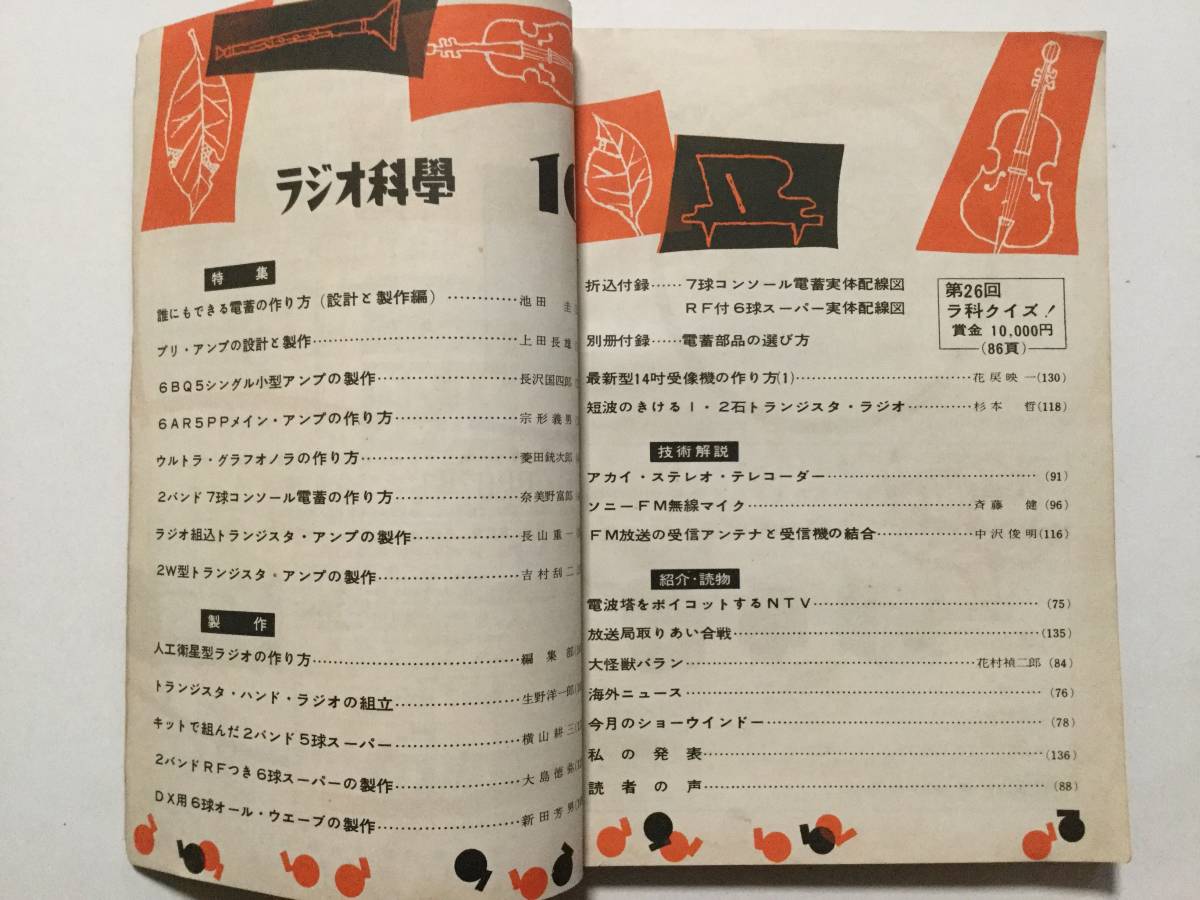 ラジオ科學 10
特集
誰にもできる電蓄の作り方(設計と製作編)…………池田 圭
プリ・アンプの設計と製作…………上田長雄
6BQ5シングル小型アンプの製作…………長沢国四郎
6AR5PPメイン・アンプの作り方…………宗形義男
ウルトラ・グラフオノラの作り方…………菱田銃次郎
2バンド7球コンソール電蓄の作り方…………奈美野富郎
ラジオ組込トランジスタ・アンプの製作…………長山重一
2W型トランジスタ・アンプの製作…………吉村刮二
製作
人工衛星型ラジオの作り方…………編集部
トランジスタ・ハンド・ラジオの組立…………生野洋一郎
キットで組んだ2バンド5球スーパー…………横山耕三
2バンドRFつき6球スーパーの製作…………大島徳弥
DX用6球オール・ウエーブの製作…………新田芳男
折込付録……7球コンソール電蓄実体配線図
RF付6球スーパー実体配線図
別冊付録……電蓄部品の選び方
第26回
ラ科クイズ!
賞金 10,000円
(86頁)
最新型14吋受像機の作り方(1)…………花房映一(130)
短波のきける1・2石トランジスタ・ラジオ…………杉本 哲(118)
技術解説
アカイ・ステレオ・テレコーダー…………(91)
ソニーFM無線マイク…………斉藤 健(96)
FM放送の受信アンテナと受信機の結合…………中沢俊明(116)
紹介・読物
電波塔をボイコットするNTV…………(75)
放送局取りあい合戦…………(135)
大怪獣バラン…………花村禎二郎(84)
海外ニュース…………(76)
今月のショーウインドー…………(78)
私の発表…………(136)
読者の声…………(88)